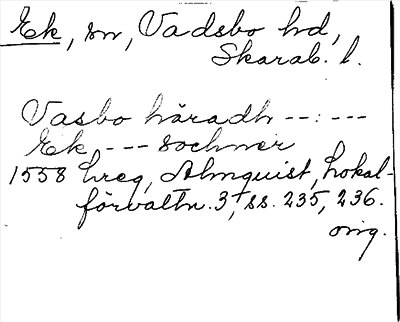 Ek, sn, Vadsbo hd,
Skarab. l.
Vasbo häradh --:---
Ek --- sochner
1558 hreg, Almquist, Lokal-
förvaltn. 3, ss. 235, 236.
orig.